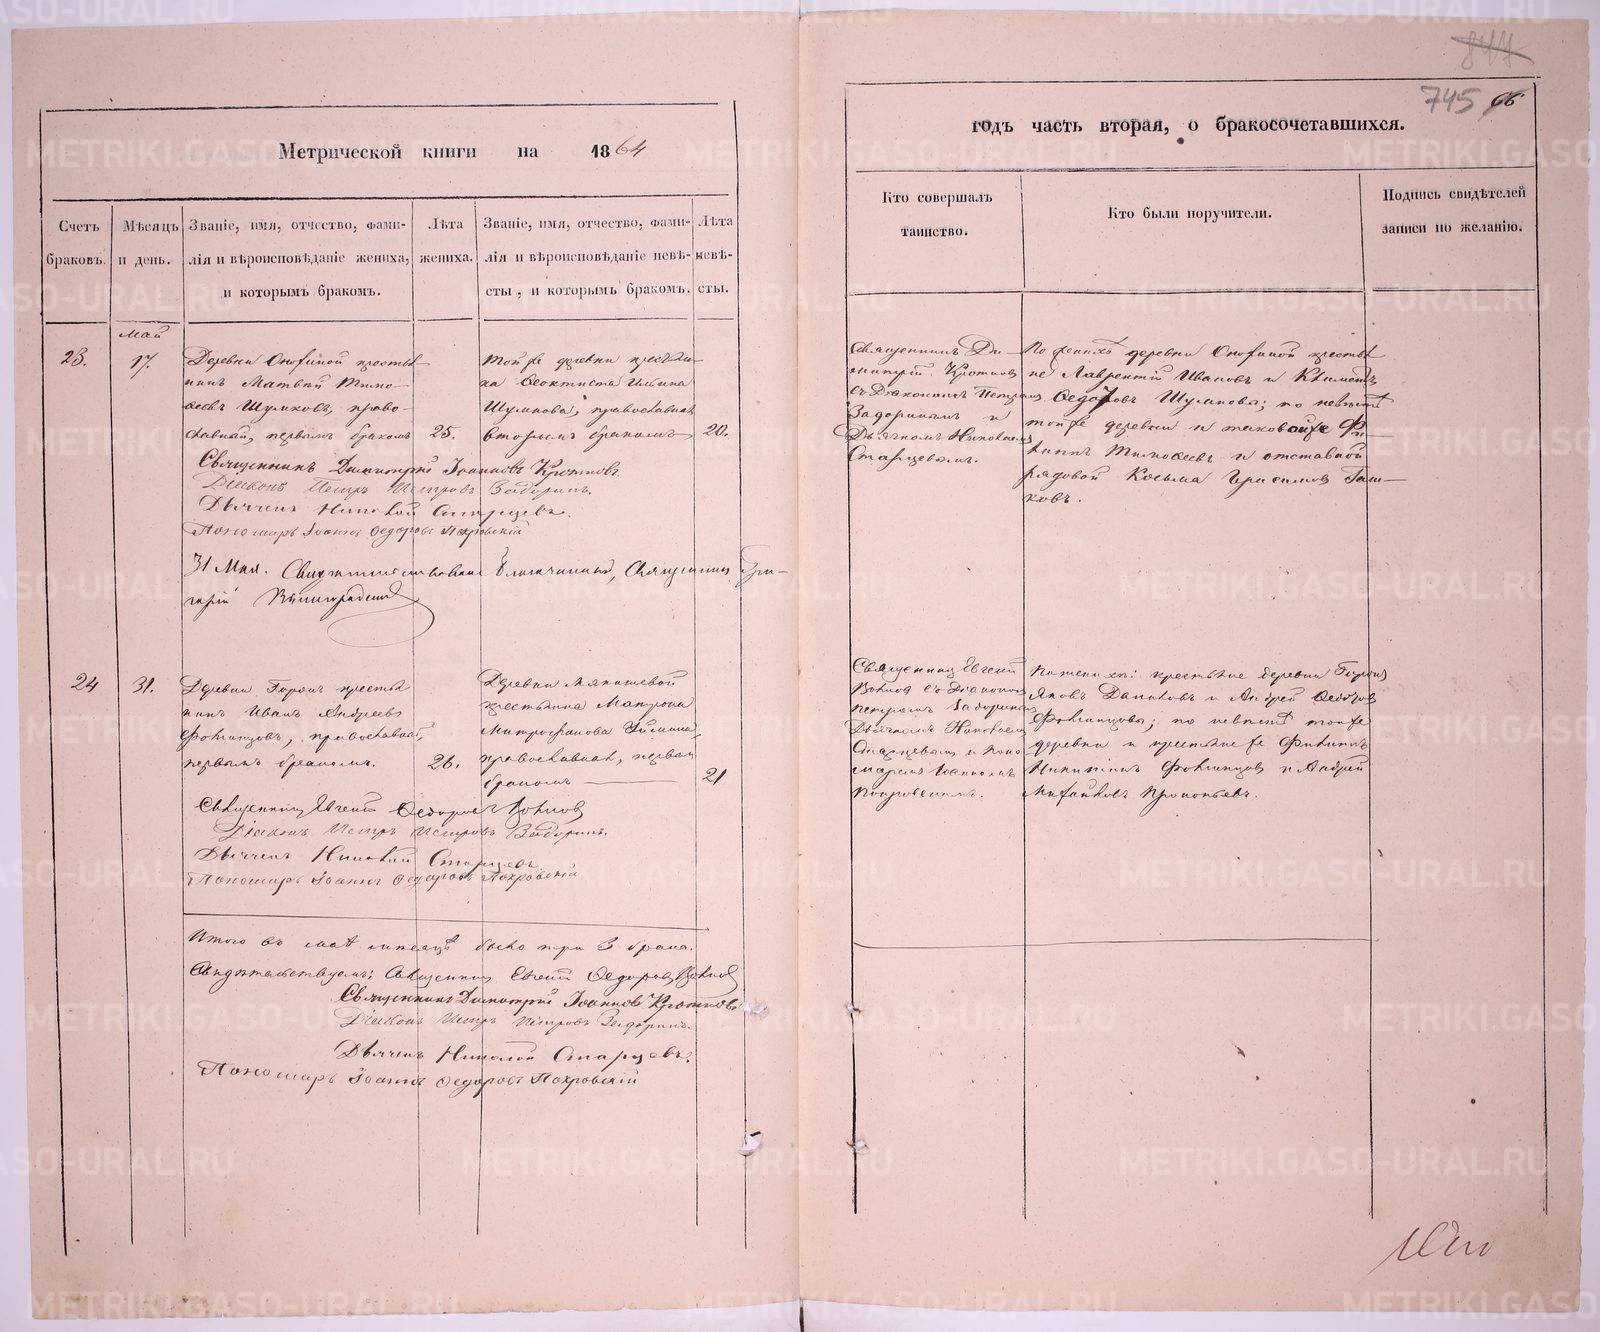 847
745 66
Метрической книги на 1864
годъ часть вторая, о бракосочетавшихся.
Счетъ браковъ.
Мѣсяцъ и день.
Званіе, имя, отчество, фами-
лія и вѣроисповѣданіе жениха,
и которымъ бракомъ.
Лѣта
жениха.
Званіе, имя, отчество, фами-
лія и вѣроисповѣданіе невѣ-
сты, и которымъ бракомъ.
Лѣта
невѣ-
сты.
Кто совершалъ
таинство.
Кто были поручители.
Подпись свидѣтелей
записи по желанію.
Май
23.
17.
Деревни кресть
нинъ Матвѣй Тимо-
ѳеевъ Шумковъ, право-
славный, первымъ бракомъ
25.
Тойже деревни крестьян
ка Ѳеоктиста Ильина
Шумкова, православная
вторымъ бракомъ
20.
Священникъ Ди-
митрій Кротковъ
съ Діакономъ Петромъ
Задоринымъ и
Дьячкомъ Николаемъ
Старцевымъ.
По женихѣ деревни кресть
не Лаврентій Ивановъ и Климентъ
Ѳедоровъ Шумковы; по невѣстѣ
тойже деревни и таковойже Фи-
липъ Тимоѳеевъ и отставной
рядовой Косьма Герасимовъ
ковъ.
Священникъ Димитрій Іоанновъ Кротковъ
Діаконъ Петръ Петровъ Задоринъ.
Дьячекъ Николай Старцевъ.
Пономарь Іоаннъ Ѳедоровъ Покровскій
31 Мая. Свидѣтельствовалъ Благочинный, Священникъ Гри-
горій
24
31.
Деревни кресть
нинъ Иванъ Андреевъ
православный,
первымъ бракомъ.
26.
Деревни
крестьянка Матрона
Митрофанова
православная, первым
бракомъ
21
Священникъ Евгеній
съ Діакономъ
Петромъ Задоринымъ
Дьячкомъ Николаемъ
Старцевымъ и Поно
маремъ Іоанномъ
Покровскимъ.
По женихѣ: крестьяне деревни
Яковъ Даниловъ и Андрей Ѳедоровъ
по невѣстѣ тойже
деревни и крестьяне же
Никитинъ и Андрей
Михайловъ Прокопьевъ.
Священникъ Евгеній Ѳедоровъ
Діаконъ Петръ Петровъ Задоринъ.
Дьячекъ Николай Старцевъ
Пономарь Іоаннъ Ѳедоровъ Покровскій
Итого въ маѣ мѣсяцѣ было три 3 брака.
Свидѣтельствуемъ: Священникъ Евгеній Ѳедоровъ
Священникъ Димитрій Іоанновъ Кротковъ
Діаконъ Петръ Петровъ Задоринъ.
Дьячекъ Николай Старцевъ.
Пономарь Іоаннъ Ѳедоровъ Покровскій
METRIKI.GASO-URAL.RU